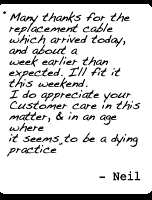 "Many thanks for the
replacement cable
which arrived today,
and about a
week earlier than
expected. I'll fit it
this weekend.
I do appreciate your
Customer care in this
matter, & in an age
where
it seems to be a dying
practice"
- Neil